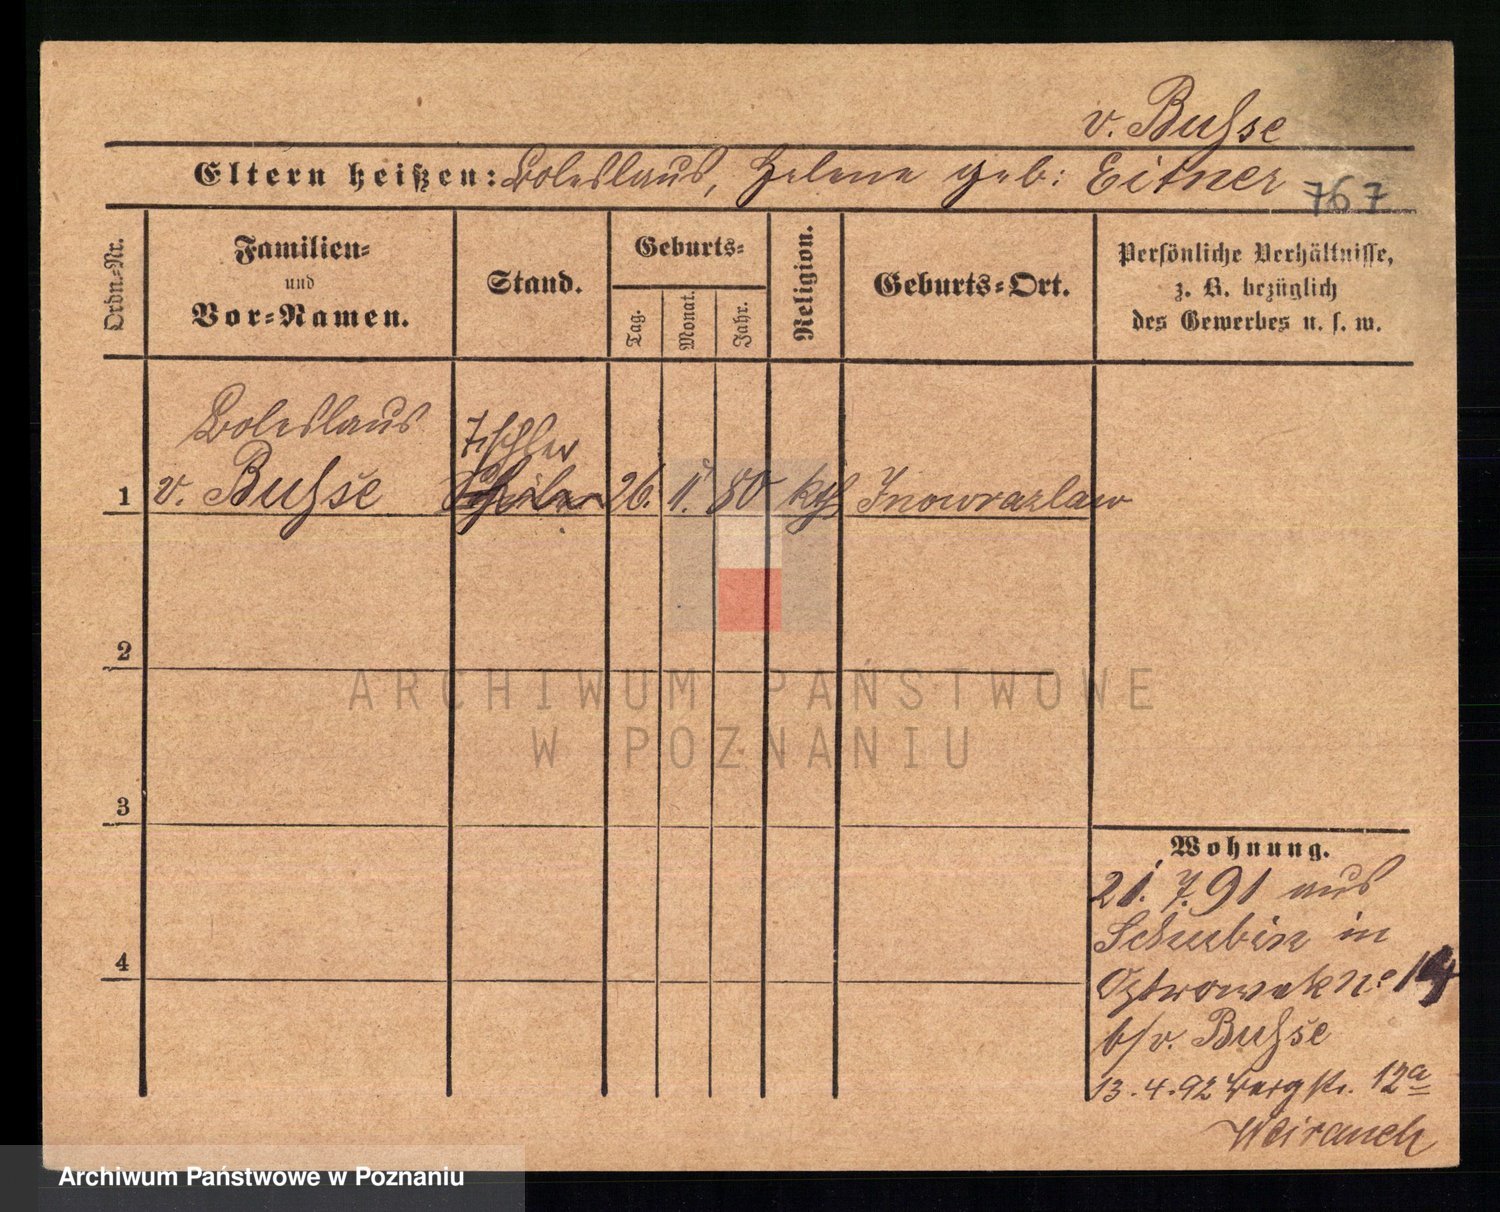 v. Busse
Eltern heißen: Boleslaus, Helene geb: Eitner 767
Ordn.-Nr.
Familien-
und
Vor-Namen.
Stand.
Geburts-
Tag.
Monat.
Jahr.
Religion.
Geburts-Ort.
Persönliche Verhältnisse,
z. B. bezüglich
des Gewerbes u. s. w.
Boleslaus Tischler
1 v. Busse 26. 11. 80 kth Inowrazlaw
2
ARCHIWUM PAŃSTWOWE
W POZNANIU
3
Wohnung.
21. 7. 91 aus
Schubin in
4
Ostrowek No 14
b/v. Busse
13. 4. 92 Bergstr. 12a
Weirauch
Archiwum Państwowe w Poznaniu